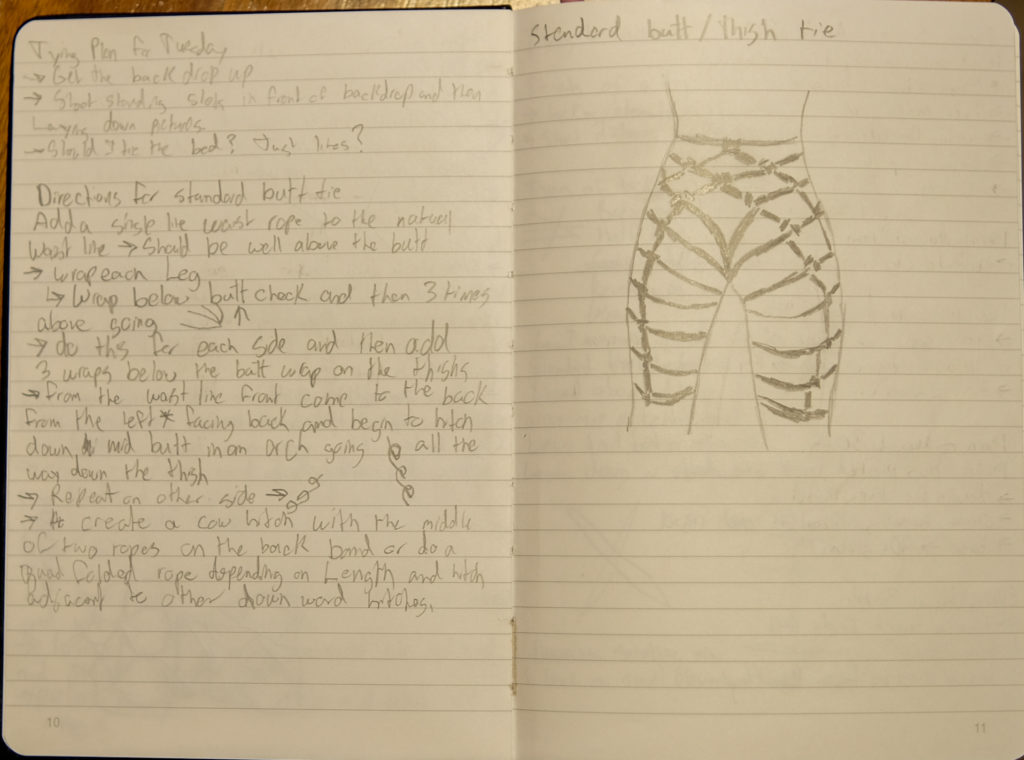 Tying Plan for Tuesday
→ Get the back drop up
→ Shoot standing shots in front of backdrop and then
Laying down pictures.
→ Should I tie the bed? Just lines?
Directions for standard butt tie
Add a single tie waist rope to the natural
Waist line → Should be well above the butt
→ wrap each Leg
↳ Wrap below butt cheek and then 3 times
above going
→ do this for each side and then add
3 wraps below the butt wrap on the thighs
→ from the waist line front come to the back
from the left * facing back and begin to hitch
down mid butt in an arch going all the
way down the thigh
→ Repeat on other side →
→ create a cow hitch with the middle
of two ropes on the back band or do a
quad folded rope depending on Length and hitch
adjacent to other down ward hitches.
10
standard butt / thigh tie
11